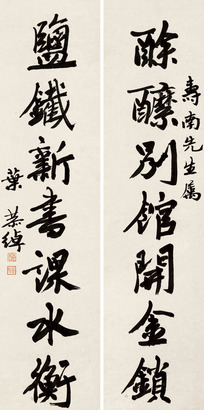 壽南先生属
酴醾別館開金鎖
鹽鐵新書課水衡
葉恭綽